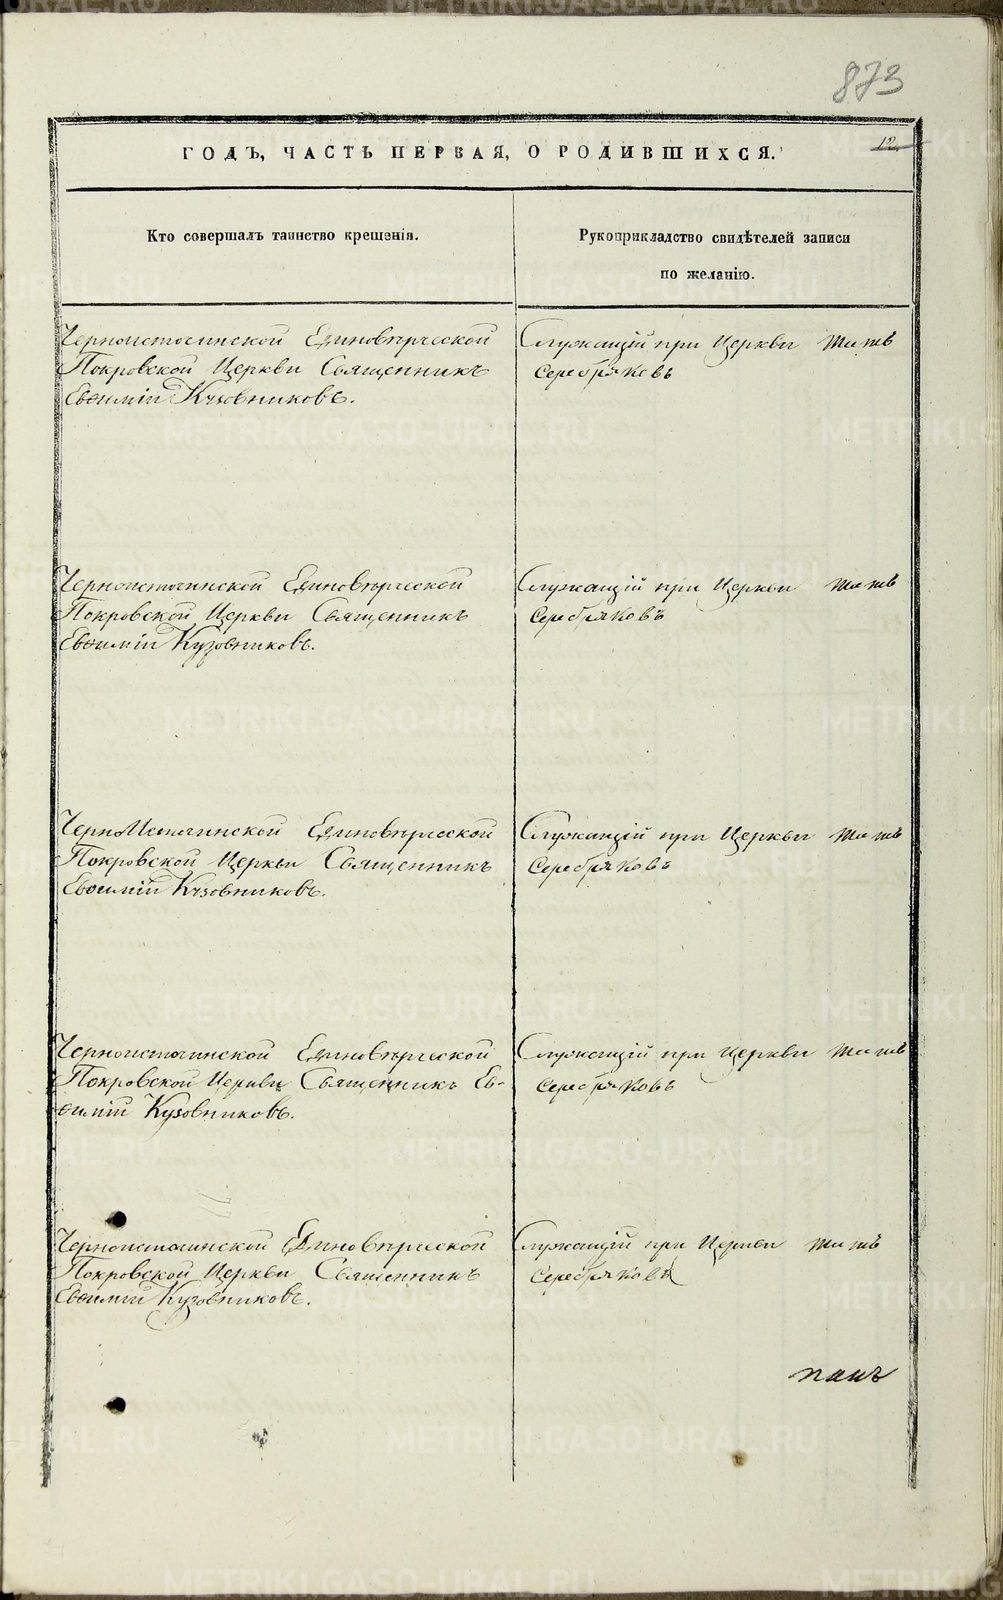 873
12.
ГОДЪ, ЧАСТЬ ПЕРВАЯ, О РОДИВШИХСЯ.
Кто совершалъ таинство крещенія.
Рукоприкладство свидѣтелей записи
по желанію.
Черноисточинской Единовѣрческой
Покровской Церкви Священникъ
Евѳимій Кузовниковъ.
Служащій при Церкви
Серебряковъ
Черноисточинской Единовѣрческой
Покровской Церкви Священникъ
Евѳимій Кузовниковъ.
Служащій при Церкви
Серебряковъ
ЧерноИсточинской Единовѣрческой
Покровской Церкви Священникъ
Евѳимій Кузовниковъ.
Служащій при Церкви
Серебряковъ
Черноисточинской Единовѣрческой
Покровской Церкви Священникъ Ев-
ѳимій Кузовниковъ.
Служащій при Церкви
Серебряковъ
Черноисточинской Единовѣрческой
Покровской Церкви Священникъ
Евѳимій Кузовниковъ.
Служащій при Церкви
Серебряковъ
METRIKI.GASO-URAL.RU